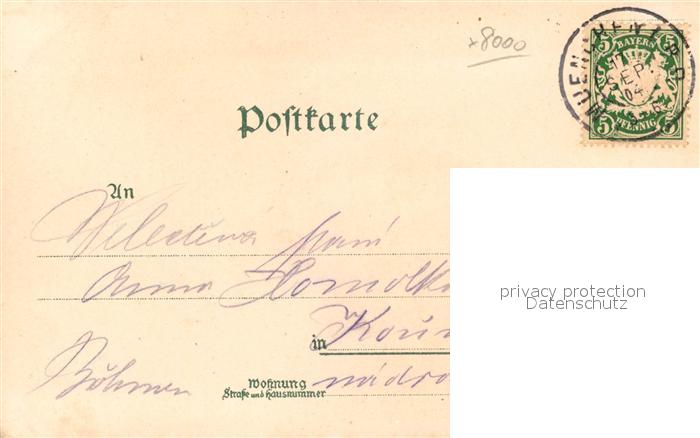 x8000
MUENCHEN 1 B.P.
17
SEP.
04
5 BAYERN 5
5 PFENNIG 5
Postkarte
An
Velectěná paní
Anna Homolk
in Kouř
Böhmen
Wohnung
Straße und Hausnummer
nádra
privacy protection
Datenschutz